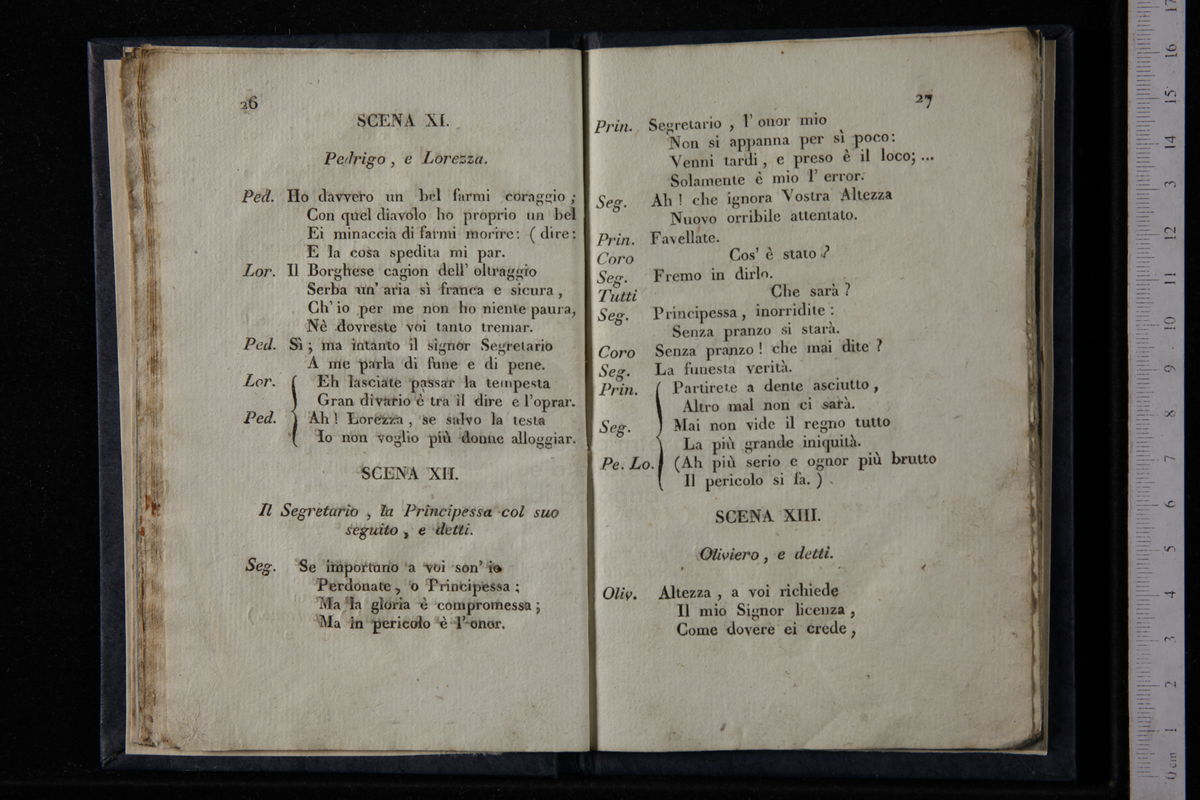 26
SCENA XI.
Pedrigo, e Lorezza.
Ped. Ho davvero un bel farmi coraggio;
Con quel diavolo ho proprio un bel
Ei minaccia di farmi morire: (dire:
E la cosa spedita mi par.
Lor. Il Borghese cagion dell' oltraggio
Serba un' aria sì franca e sicura,
Ch' io per me non ho niente paura,
Nè dovreste voi tanto tremar.
Ped. Sì; ma intanto il signor Segretario
A me parla di fune e di pene.
Lor. Eh lasciate passar la tempesta
Gran divario è tra il dire e l'oprar.
Ped. Ah! Lorezza, se salvo la testa
Io non voglio più donne alloggiar.
SCENA XII.
Il Segretario, la Principessa col suo
seguito, e detti.
Seg. Se importuno a voi son' io
Perdonate, o Principessa;
Ma la gloria è compromessa;
Ma in pericolo è l'onor.
27
Prin. Segretario, l' onor mio
Non si appanna per sì poco:
Venni tardi, e preso è il loco;...
Solamente è mio l' error.
Seg. Ah! che ignora Vostra Altezza
Nuovo orribile attentato.
Prin. Favellate.
Coro Cos' è stato?
Seg. Fremo in dirlo.
Tutti Che sarà?
Seg. Principessa, inorridite:
Senza pranzo si starà.
Coro Senza pranzo! che mai dite?
Seg. La funesta verità.
Prin. Partirete a dente asciutto,
Altro mal non ci sarà.
Seg. Mai non vide il regno tutto
La più grande iniquità.
Pe. Lo. (Ah più serio e ognor più brutto
Il pericolo si fa.)
SCENA XIII.
Oliviero, e detti.
Oliv. Altezza, a voi richiede
Il mio Signor licenza,
Come dovere ei crede,
0 cm 1 2 3 4 5 6 7 8 9 10 11 12 13 14 15 16 17